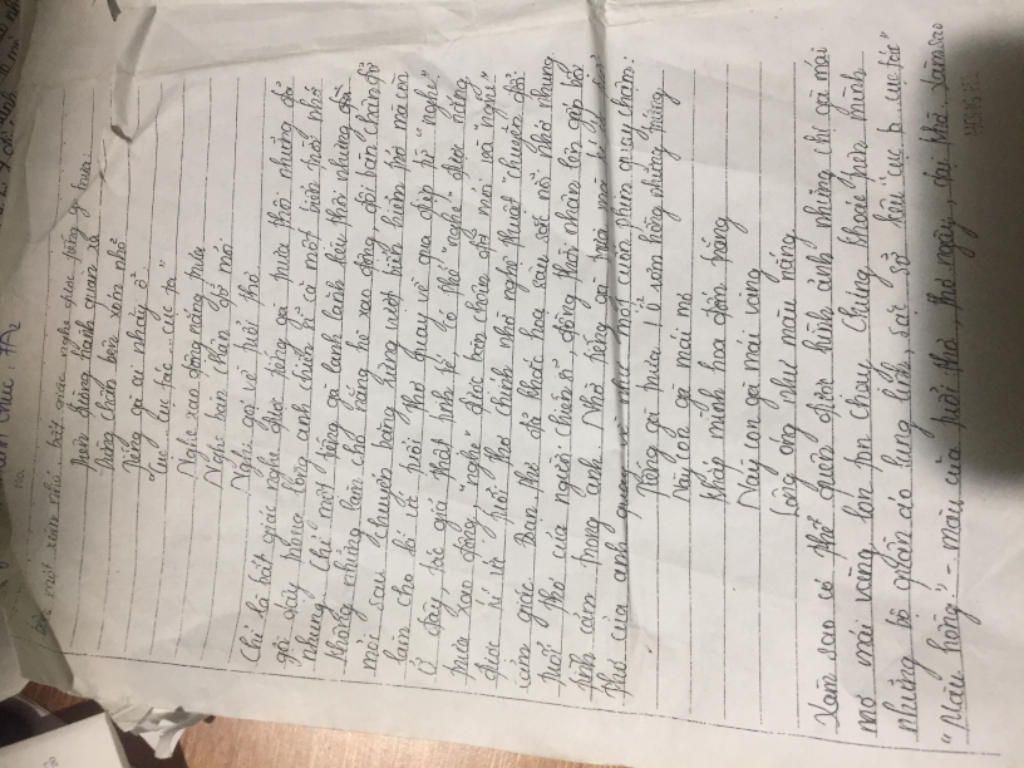 bên một xóm nhỏ, bất giác nghe được tiếng gà trưa:
Trên đường hành quân xa
Dừng chân bên xóm nhỏ
Tiếng gà ai nhảy ổ
"Cục... cục tác... cục ta"
Nghe xao động nắng trưa
Nghe bàn chân đỡ mỏi
Nghe gọi về tuổi thơ
Chỉ là bất giác nghe được tiếng gà trưa thôi nhưng đã
gợi dậy trong lòng anh chiến sĩ cả một biển trời nhớ
nhung. Chỉ một tiếng gà lanh lảnh kêu thôi nhưng đã
không những làm cho nắng trưa xao động, đôi bàn chân đỡ
mỏi sau chuyến băng rừng vượt biết hiểm trở mà còn
làm cho kí ức tuổi thơ quay về qua điệp từ "nghe".
Ở đây, tác giả thật tinh tế, có thể "nghe" được nắng
trưa xao động, "nghe" được bàn chân đỡ mỏi và "nghe"
được kí ức tuổi thơ chính nhờ nghệ thuật chuyển đổi
cảm giác. Bạn thơ đã khắc họa sâu sắc nỗi nhớ nhung
tuổi thơ của người chiến sĩ, đồng thời nhân lên gấp bội
tình cảm trong anh. Nhờ tiếng gà trưa mà kí ức tuổi
thơ của anh quay như một cuốn phim quay chậm:
Tiếng gà trưa
Ổ rơm hồng những trứng
Này con gà mái mơ
Khắp mình hoa đốm trắng
Này con gà mái vàng
Lông óng như màu nắng
Làm sao có thể quên được hình ảnh những chị gà mái
mơ mái vàng lon ton chạy. Chúng khoác trên mình
những bộ quần áo lung linh, sặc sỡ kêu "cục ... cục tác"
"Màu hồng" - màu của tuổi thơ, thơ ngây, dại khờ. Làm sao